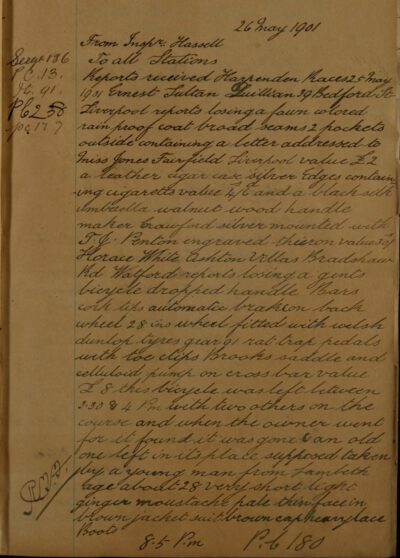 26 May 1901
From Inspr. Hassell
To all Stations
Sergt 186
P.C. 13.
91.
P 62
Reports received Harpenden Races 25 May
1901 Ernest Sultan Quillian 39 Bedford St
Liverpool reports losing a fawn colored
rain proof coat broad seams 2 pockets
outside containing a letter addressed to
Miss Jones Fairfield Liverpool value £2
a leather cigar case silver Edges contain
ing cigaretts value 4/6 and a black silk
umbrella walnut wood handle
maker Crawford silver mounted with
T.G. Penton engraved thereon value 30/
Horace White Ashton Villas Bradshaw
Rd Watford reports losing a gents
bicycle dropped handle Bars
cork tips automatic brake on back
wheel 28 ins wheel fitted with welsh
dunlop tyres gear 91 rat trap pedals
with toe clips Brooks saddle and
celluloid pump on cross bar value
£8 this bicycle was left between
3-30 & 4 Pm with two others on the
course and when the owner went
for it found it was gone & an old
one left in its place supposed taken
by a young man from Lambeth
age about 28 very short light
ginger moustache pale thin face in
brown jacket suit brown cap heavy lace
Boots
8.5 P.m P.C 180